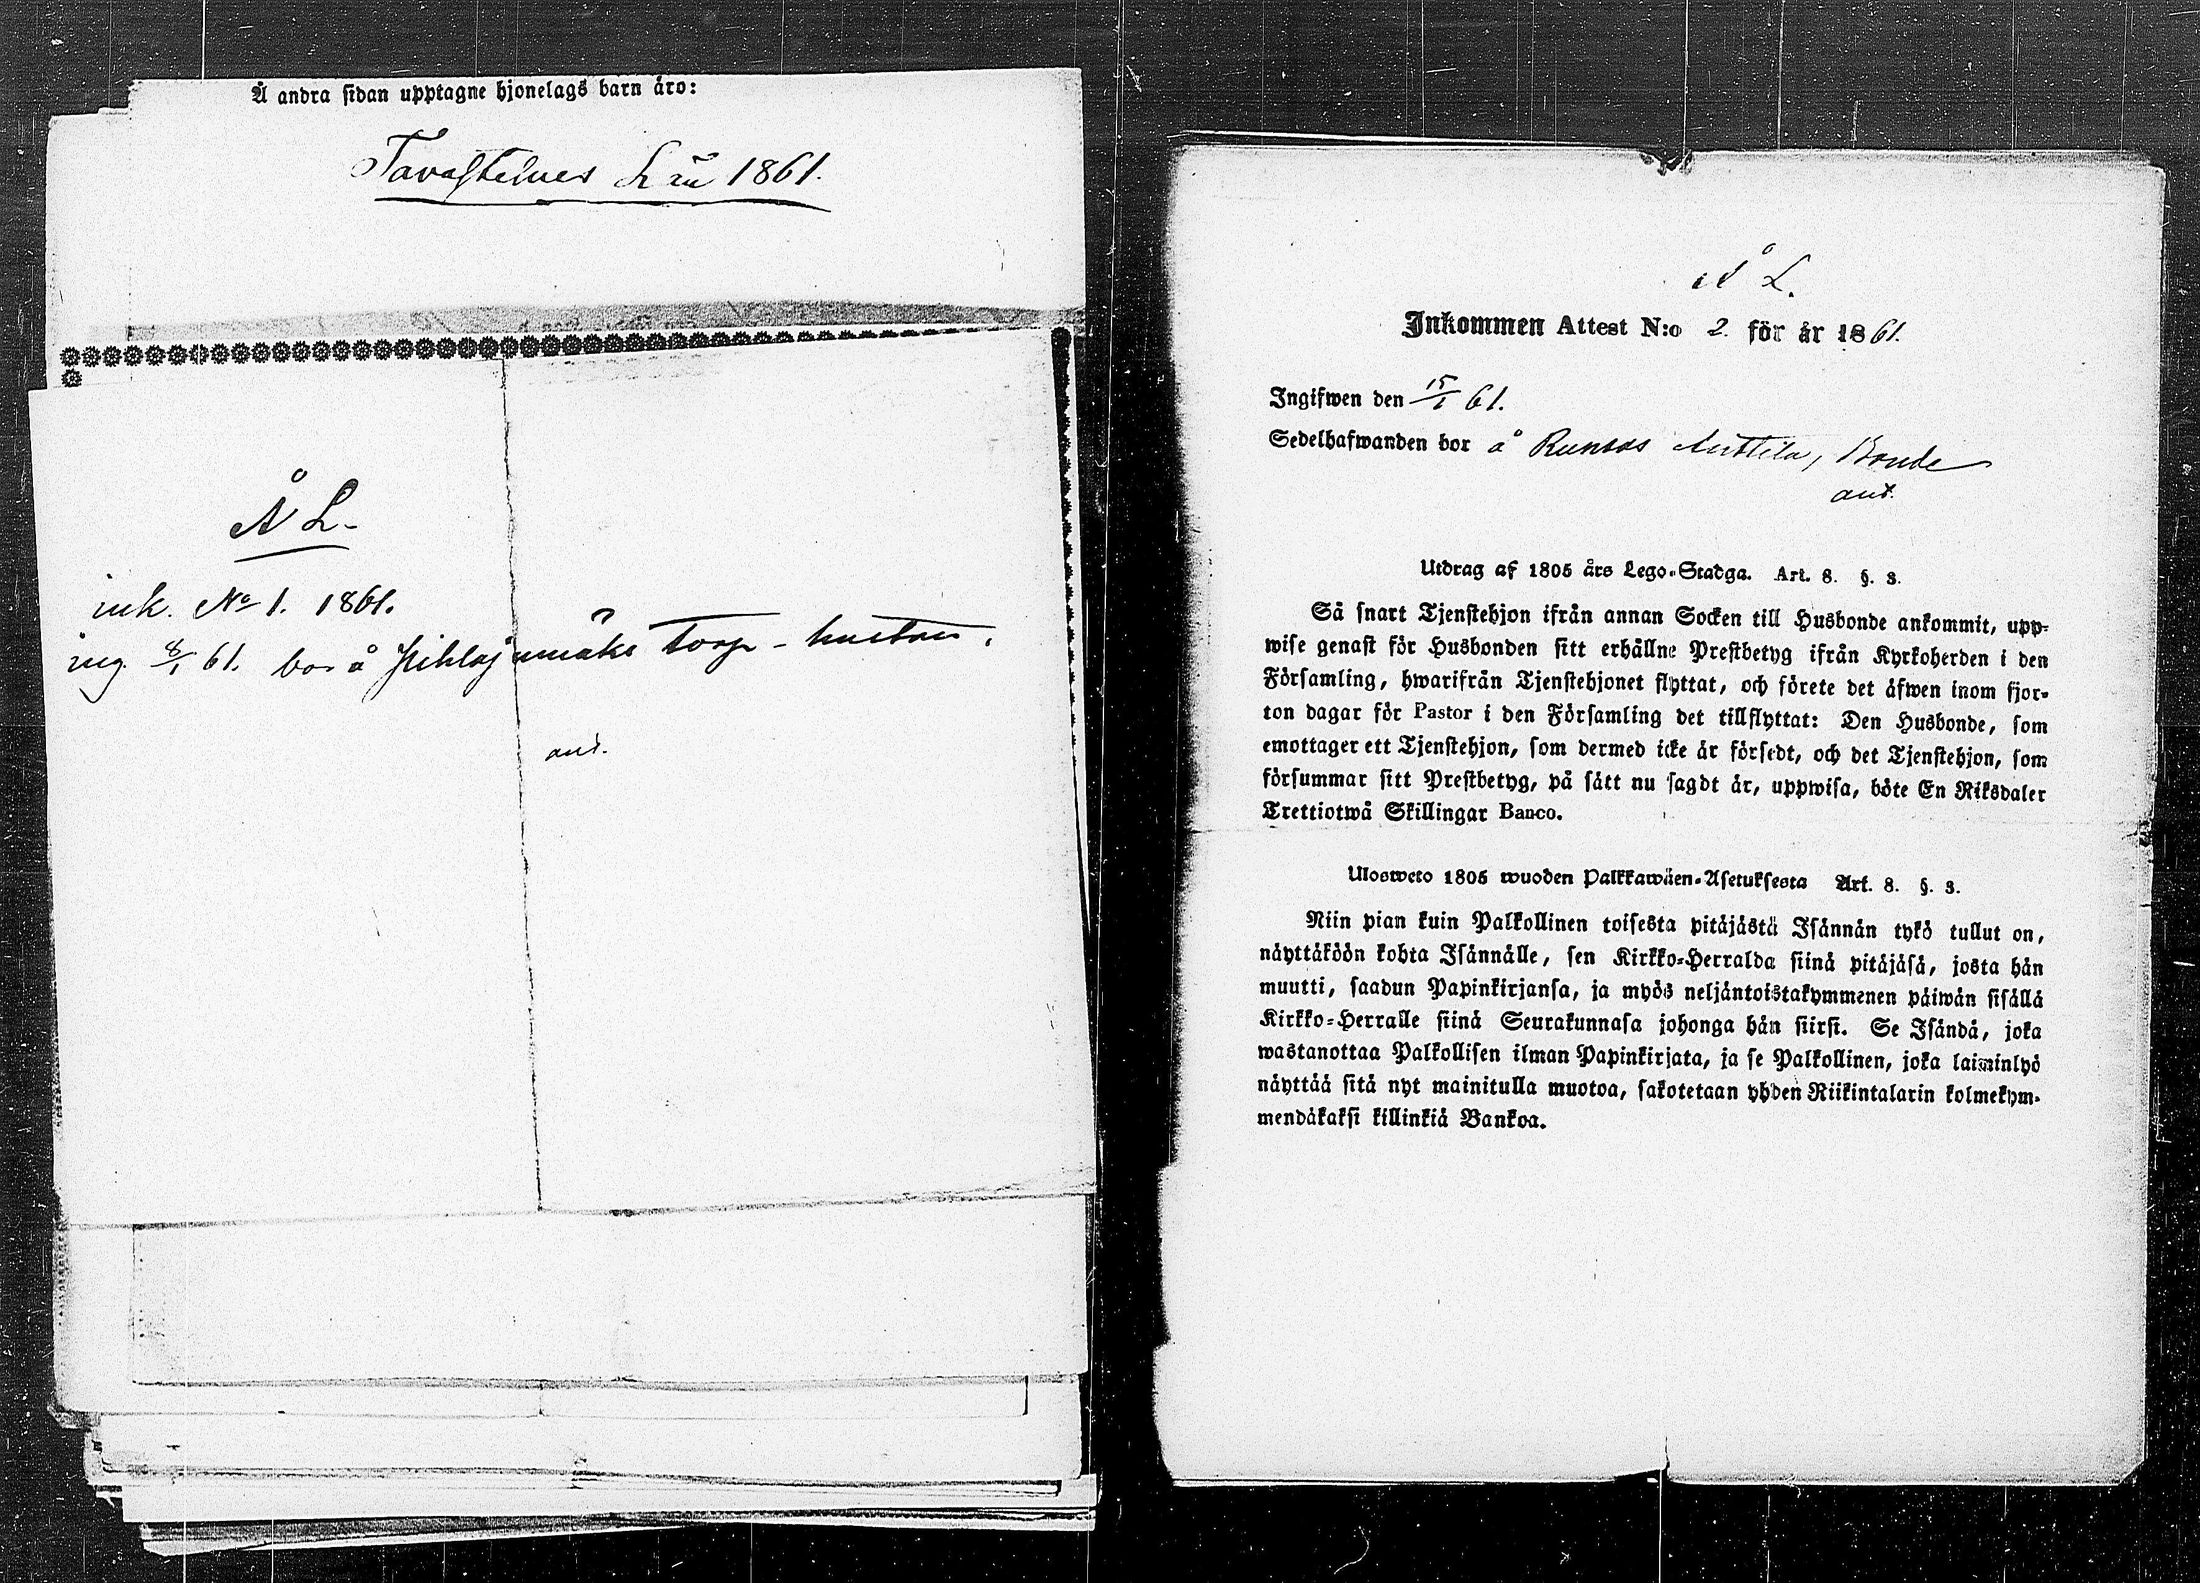 Å andra sidan upptagne hjonelags barn äro:
Tavastehus Län 1861.
Å L.
ink. No 1. 1861.
ing. 8/1 61. bor å Pihlajamäki Torp - hustru.
ant.
Å L.
Inkommen Attest N:o 2. för år 1861.
Ingifwen den 15/1 61.
Sedelhafwanden bor å Anttila, Bonde
ant.
Utdrag af 1805 års Lego-Stadga. Art. 8. §. 3.
Så snart Tjenstehjon ifrån annan Socken till Husbonde ankommit, upp-
wise genast för Husbonden sitt erhållne Prestbetyg ifrån Kyrkoherden i den
Församling, hwarifrån Tjenstehjonet flyttat, och förete det äfwen inom fjor-
ton dagar för Pastor i den Församling det tillflyttat: Den Husbonde, som
emottager ett Tjenstehjon, som dermed icke är försedt, och det Tjenstehjon, som
försummar sitt Prestbetyg, på sätt nu sagdt är, uppwisa, böte En Riksdaler
Trettiotwå Skillingar Banco.
Ulosweto 1805 wuoden Palkkawäen-Asetuksesta Art. 8. §. 3.
Niin pian kuin Palkollinen toisesta pitäjästä Isännän tykö tullut on,
näyttäköön kohta Isännälle, sen Kirkko-Herralda siinä pitäjäsä, josta hän
muutti, saadun Papinkirjansa, ja myös neljäntoistakymmenen päiwän sisällä
Kirkko-Herralle siinä Seurakunnasa johonga hän siirsi. Se Isändä, joka
wastanottaa Palkollisen ilman Papinkirjata, ja se Palkollinen, joka laiminlyö
näyttää sitä nyt mainitulla muotoa, sakotetaan yhden Riikintalarin kolmekym-
mendäkaksi killinkiä Bankoa.